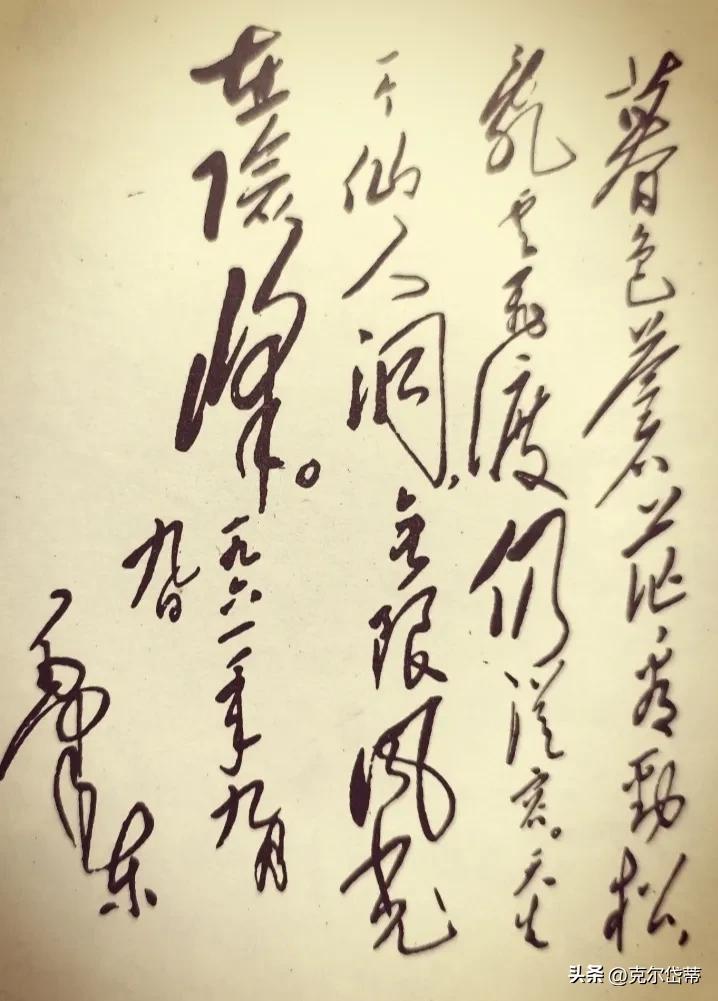 暮色蒼茫看勁松，
亂云飛渡仍從容。天生
一个仙人洞，无限風光
在險峰。一九六一年九月
九日
毛泽东
头条 @克尔岱蒂